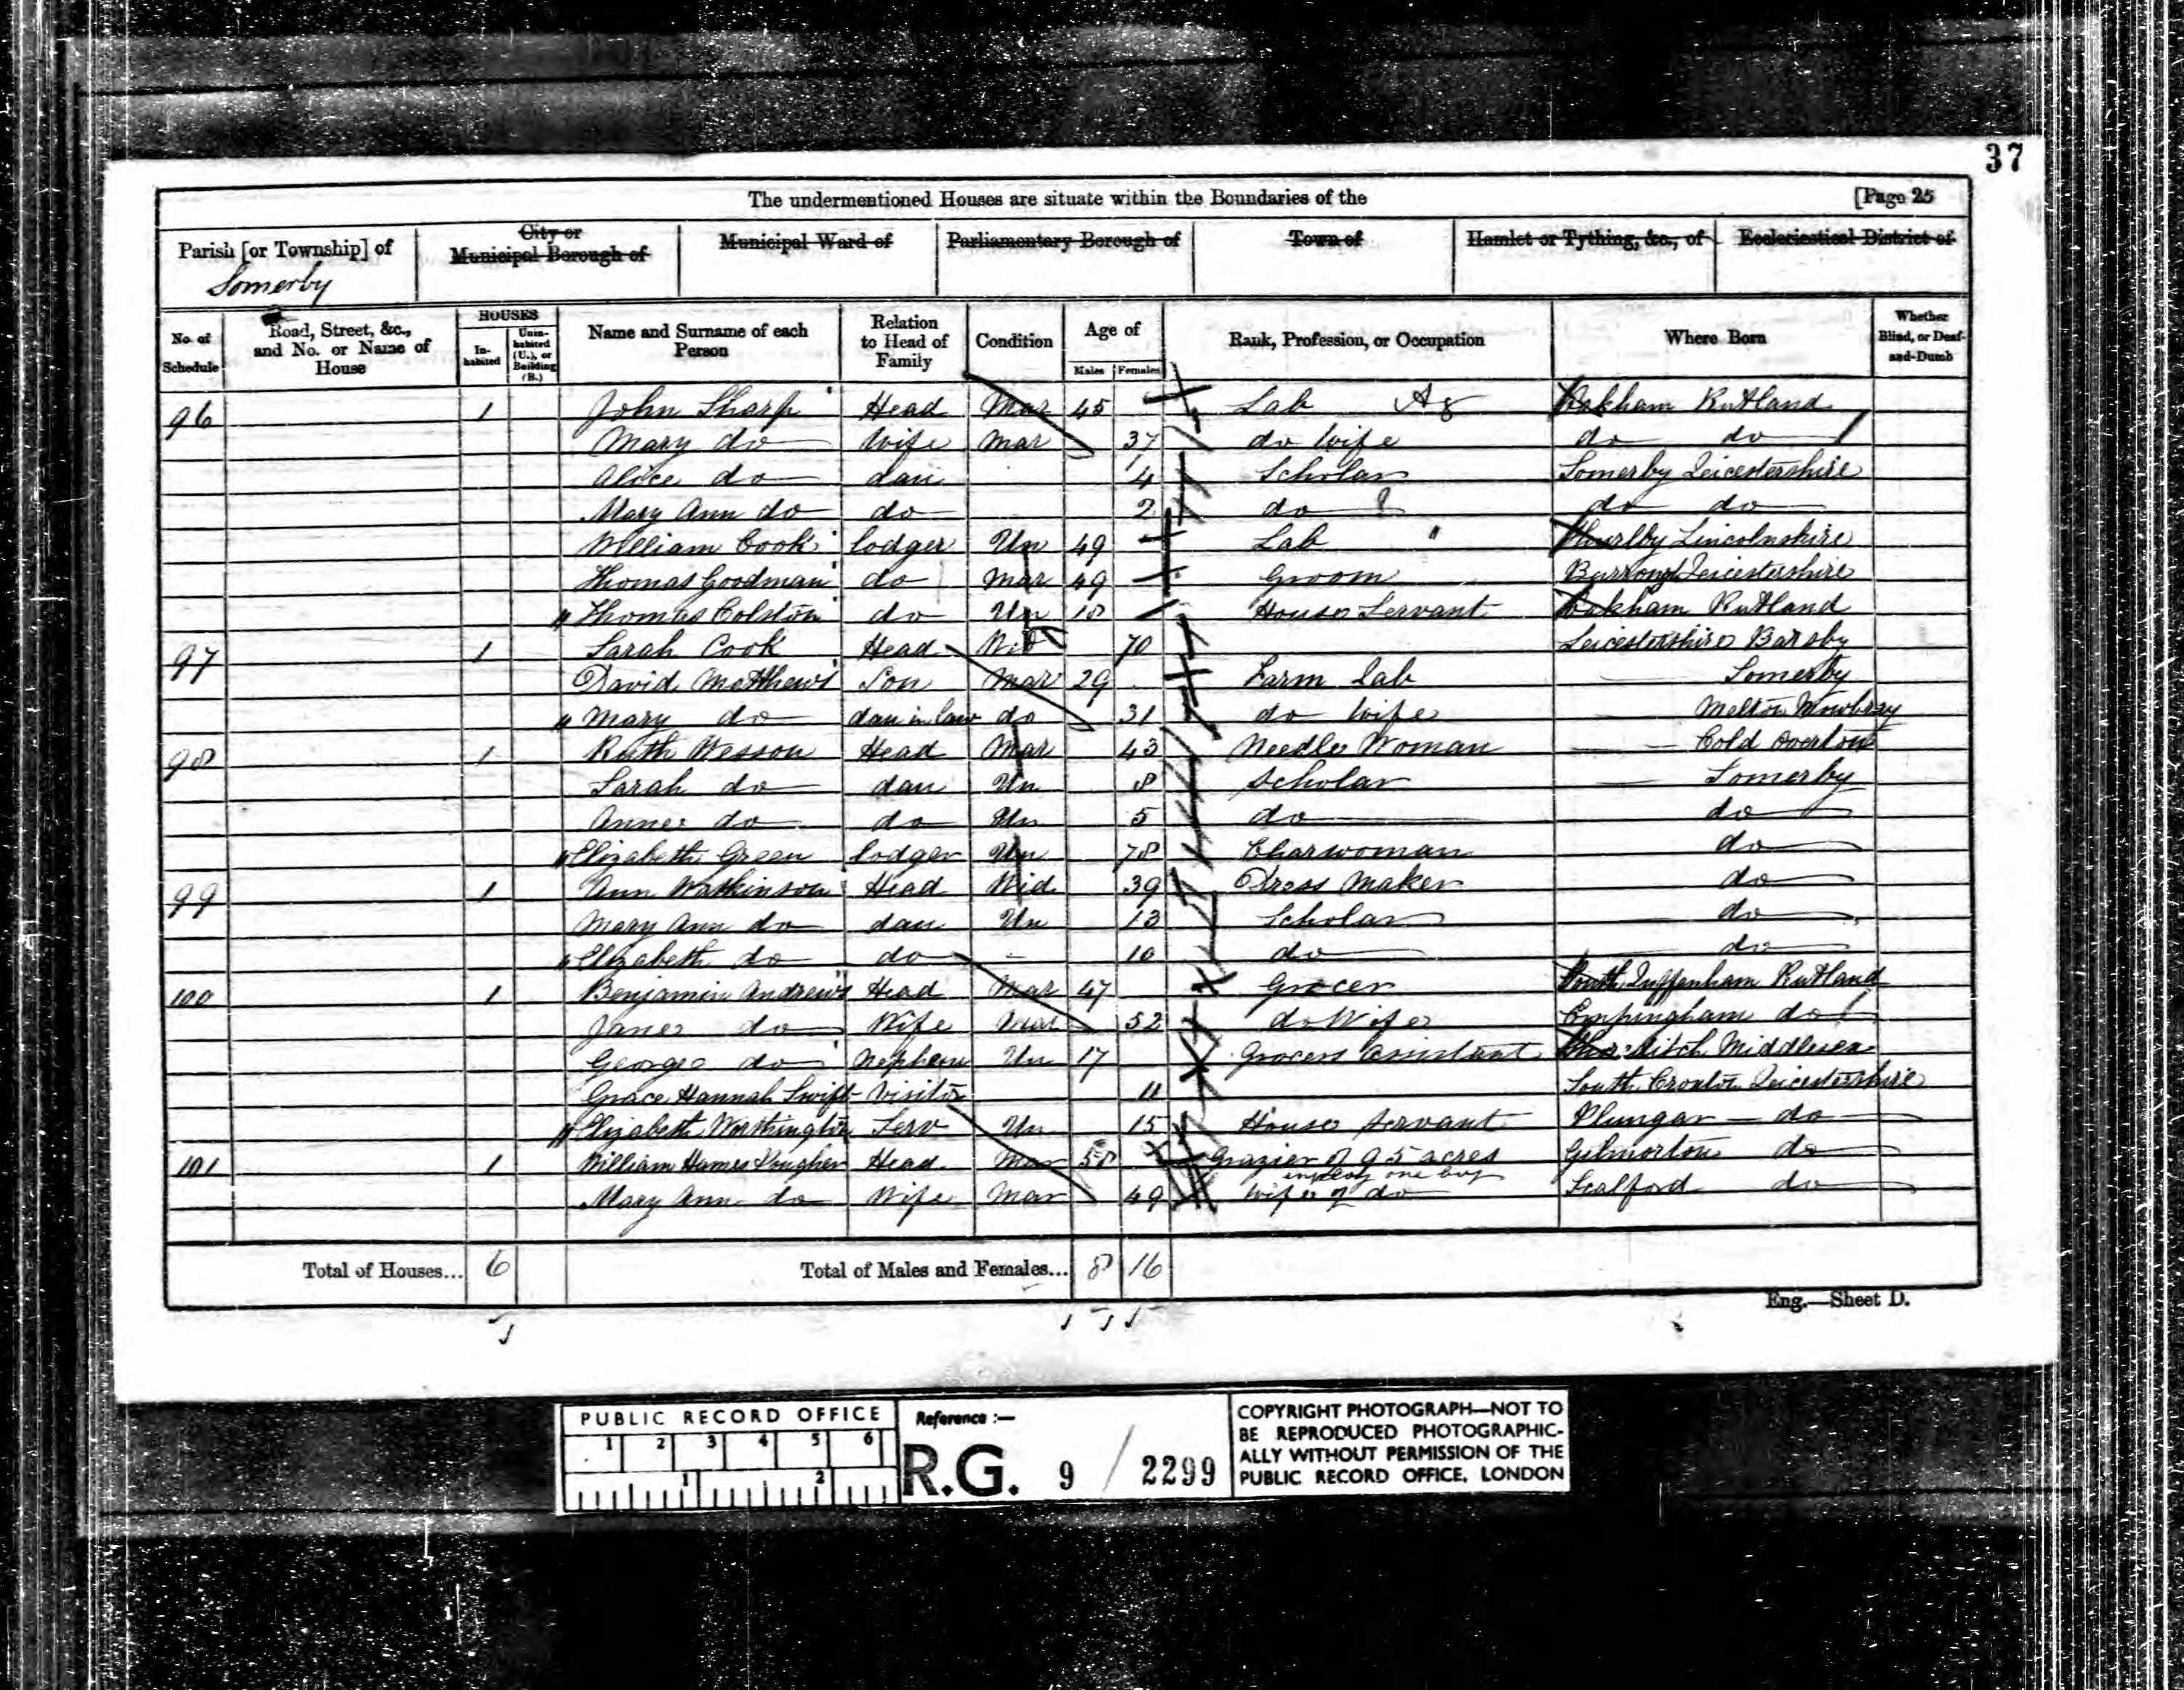 37
The undermentioned Houses are situate within the Boundaries of the [Page 25
Parish [or Township] of Somerby
City or Municipal Borough of
Municipal Ward of
Parliamentary Borough of
Town of
Hamlet or Tything, &c., of
Ecclesiastical District of
No. of Schedule
Road, Street, &c., and No. or Name of House
HOUSES
In-habited
Unin-habited (U.), or Building (B.)
Name and Surname of each Person
Relation to Head of Family
Condition
Age of
Males Females
Rank, Profession, or Occupation
Where Born
Whether Blind, or Deaf-and-Dumb
96 1 John Sharp Head Mar 45 Lab Ag Oakham Rutland
Mary do Wife Mar 37 do Wife do do
Alice do dau 4 Scholar Somerby Leicestershire
Mary Ann do do 2 do do do
William Cook lodger Un 49 Lab " Thurlby Lincolnshire
Thomas Goodman do Mar 49 Groom Burrough Leicestershire
" Thomas Colston do Un 18 House Servant Oakham Rutland
97 1 Sarah Cook Head Wid 70 Leicestershire Barsby
David Matthews Son Mar 29 Farm Lab Somerby
" Mary do dau in law do 31 do Wife Melton Mowbray
98 1 Ruth Wesson Head Mar 43 Needle Woman Cold Overton
Sarah do dau Un 8 Scholar Somerby
Anne do do Un 5 do do
" Elizabeth Green lodger Un 78 Charwoman do
99 1 Ann Watkinson Head Wid 39 Dress Maker do
Mary Ann do dau Un 13 Scholar do
" Elizabeth do do - 10 do do
100 1 Benjamin Andrews Head Mar 47 Grocer South Luffenham Rutland
Jane do Wife Mar 52 do Wife Empingham do
George do Nephew Un 17 Grocers Assistant Middlesex
Grace Hannah Swift Visitor 11 South Croxton Leicestershire
" Elizabeth Worthington Serv Un 15 House Servant Plungar do
101 1 William Hames Head Mar 58 Grazier of 95 acres Gilmorton do
employ one boy
Mary Ann do Wife Mar 49 Wife of do Scalford do
Total of Houses... 6 Total of Males and Females... 8 16
Eng.—Sheet D.
PUBLIC RECORD OFFICE
1 2 3 4 5 6
1 2
Reference :—
R.G. 9 / 2299
COPYRIGHT PHOTOGRAPH—NOT TO
BE REPRODUCED PHOTOGRAPHIC-
ALLY WITHOUT PERMISSION OF THE
PUBLIC RECORD OFFICE, LONDON